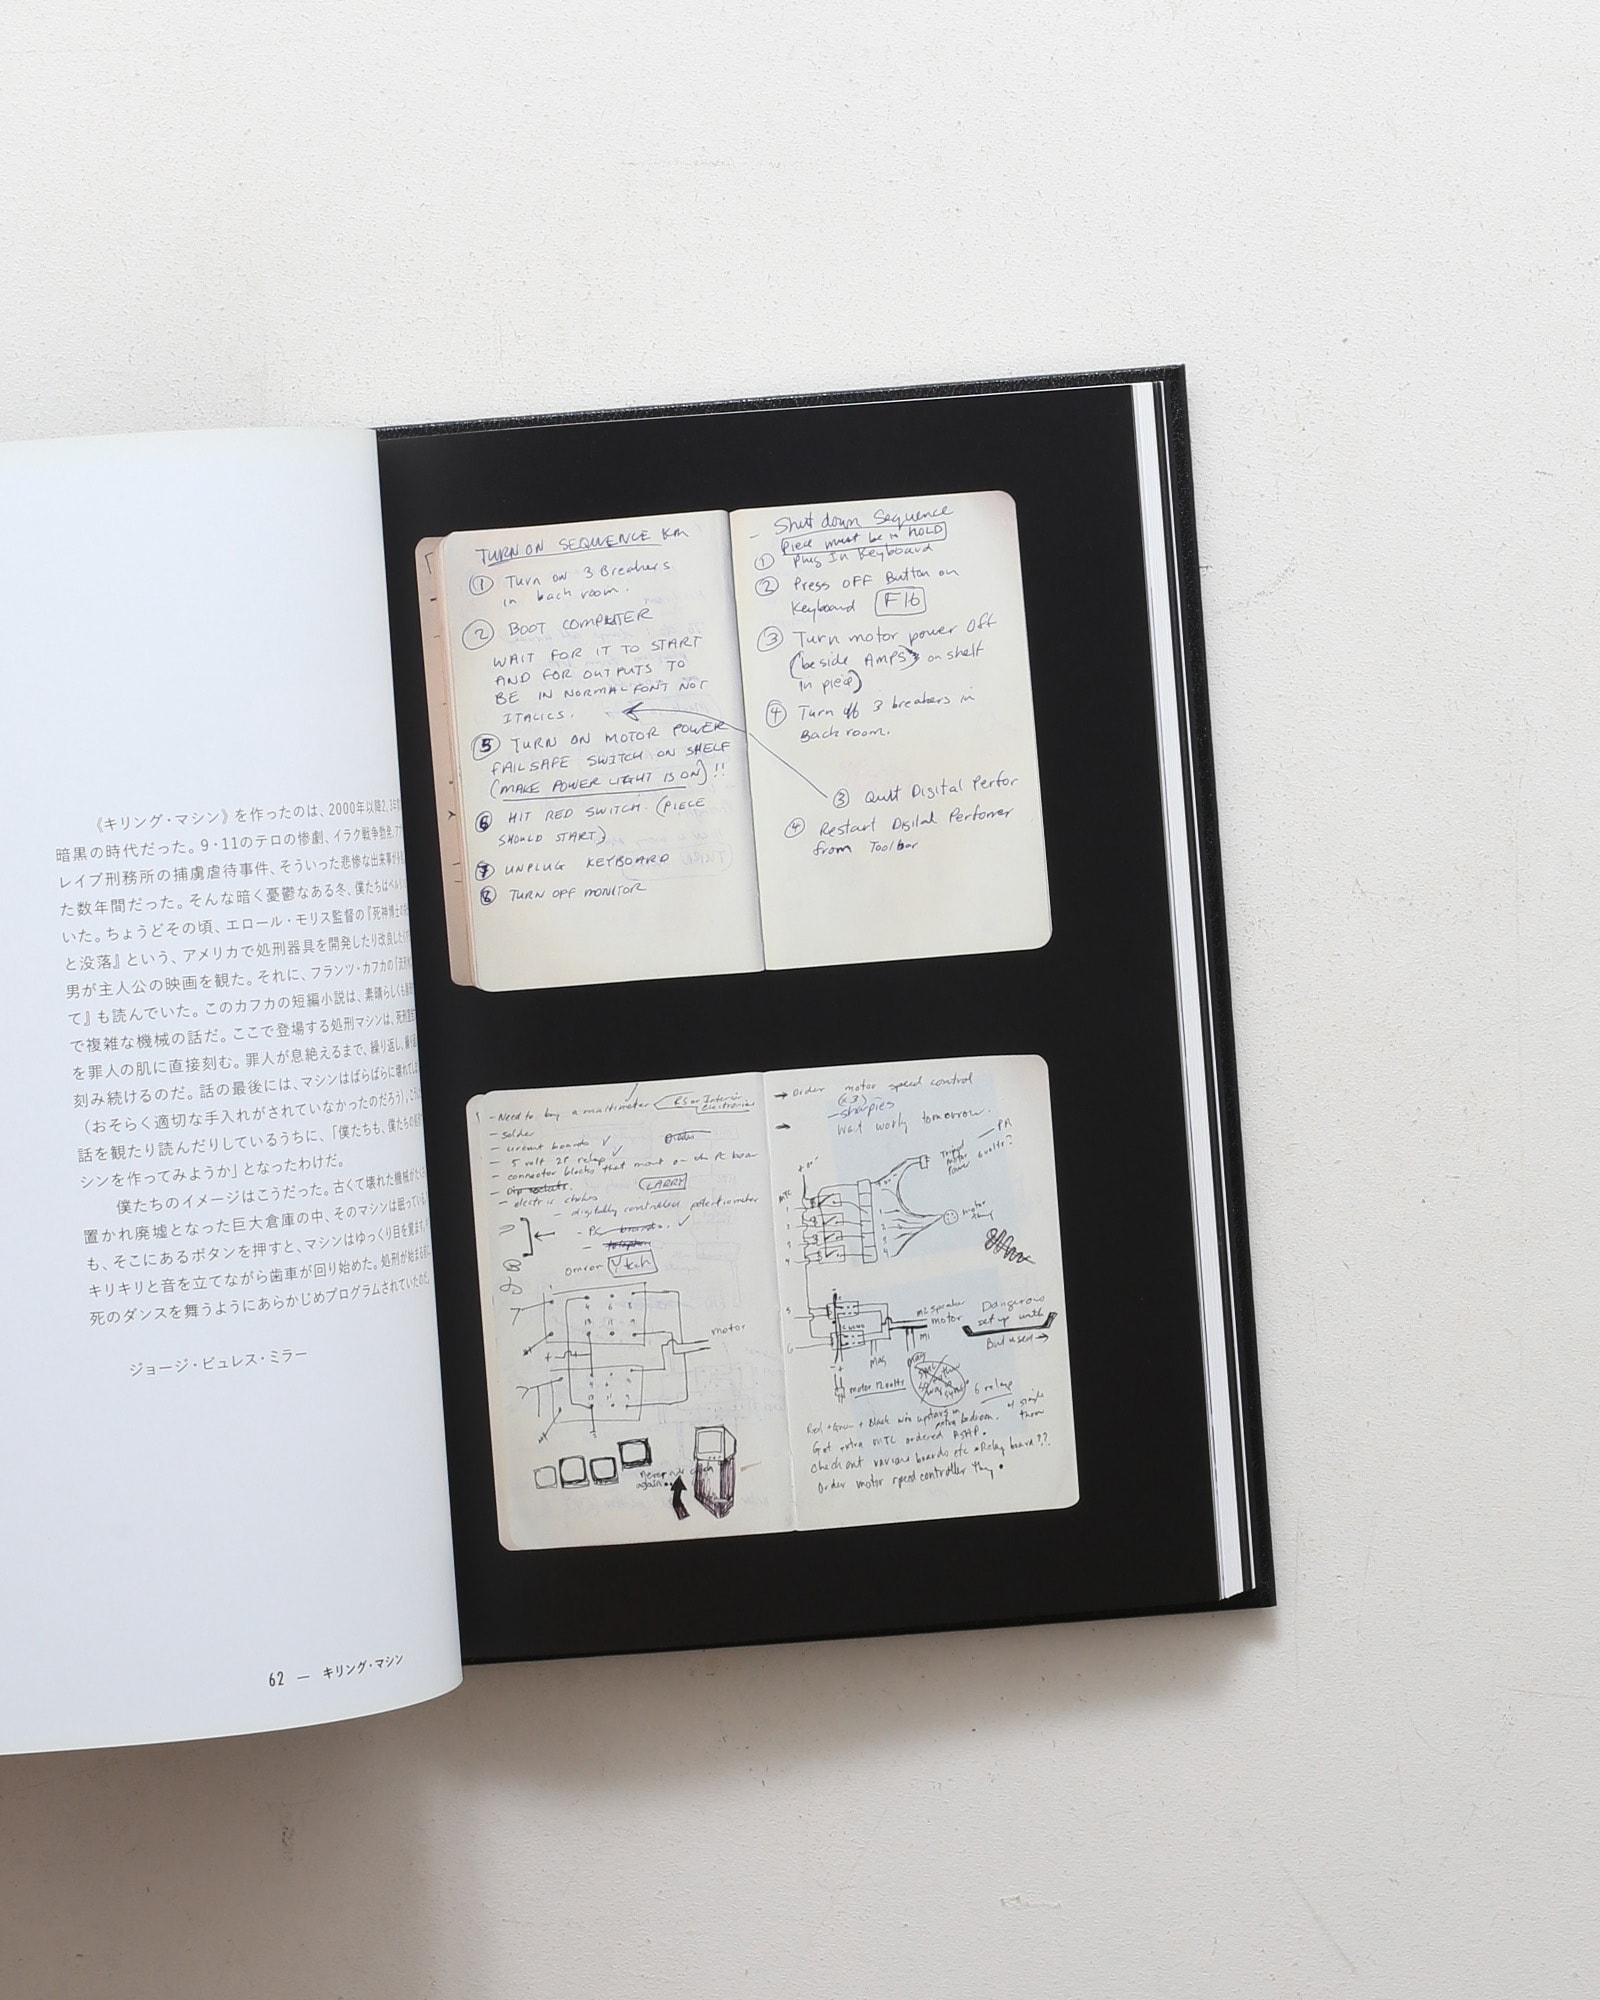 《キリング・マシン》を作ったのは、2000年以降2,3年
暗黒の時代だった。9・11のテロの惨劇、イラク戦争勃発、
レイブ刑務所の捕虜虐待事件、そういった悲惨な出来事が
た数年間だった。そんな暗く憂鬱なある冬、僕たちはベル
いた。ちょうどその頃、エロール・モリス監督の『死神博士の
と没落』という、アメリカで処刑器具を開発したり改良した
男が主人公の映画を観た。それに、フランツ・カフカの『流刑
て』も読んでいた。このカフカの短編小説は、素晴らしくも
で複雑な機械の話だ。ここで登場する処刑マシンは、死刑
を罪人の肌に直接刻む。罪人が息絶えるまで、繰り返し、
刻み続けるのだ。話の最後には、マシンはばらばらに壊れてし
（おそらく適切な手入れがされていなかったのだろう）。
話を観たり読んだりしているうちに、「僕たちも、僕たちの
シンを作ってみようか」となったわけだ。
僕たちのイメージはこうだった。古くて壊れた機械が
置かれ廃墟となった巨大倉庫の中、そのマシンは眠ってい
も、そこにあるボタンを押すと、マシンはゆっくり目を覚ます。
キリキリと音を立てながら歯車が回り始めた。処刑が始まる
死のダンスを舞うようにあらかじめプログラムされていたのだ
ジョージ・ビュレス・ミラー
62 — キリング・マシン
TURN ON SEQUENCE KM
① Turn on 3 Breakers
in back room.
② BOOT COMPUTER
WAIT FOR IT TO START
AND FOR OUTPUTS TO
BE IN NORMAL FONT NOT
ITALICS.
⑤ TURN ON MOTOR POWER
FAILSAFE SWITCH ON SHELF
(MAKE POWER LIGHT IS ON) !!
⑥ HIT RED SWITCH. (PIECE
SHOULD START)
⑦ UNPLUG KEYBOARD
⑧ TURN OFF MONITOR
Shut down Sequence
Piece must be in HOLD
① Plug In Keyboard
② Press OFF Button on
Keyboard F16
③ Turn motor power Off
(beside AMPS on shelf
in piece)
④ Turn off 3 breakers in
Back room.
③ Quit Digital Perfor
④ Restart Digital Performer
from Toolbar
- Need to buy a multimeter RS or Interior
Electronics
- solder
- circuit boards ✓
- 5 volt 2P relay ✓
- connector blocks that mount on the PC board
- electric chokes
LARRY
- digitally controlled potentiometer
- PC boards. ✓
omron Ytech
motor
Never
again
→ Order motor speed control
(x3)
- sharpies
→ wait worly tomorrow.
PA
Tripod
motor
power 6 volts?
MTC
1
2
3
4
motor
thing
5
6
M2 speaker
motor
M1
Dangerous
set up with
But used →
MAG
motor 12 volts
6 relay
Red + Green + Black wire upstairs in
extra bedroom.
Get extra MTC ordered ASAP.
Check out various boards etc Relay board??
Order motor speed controller thing.